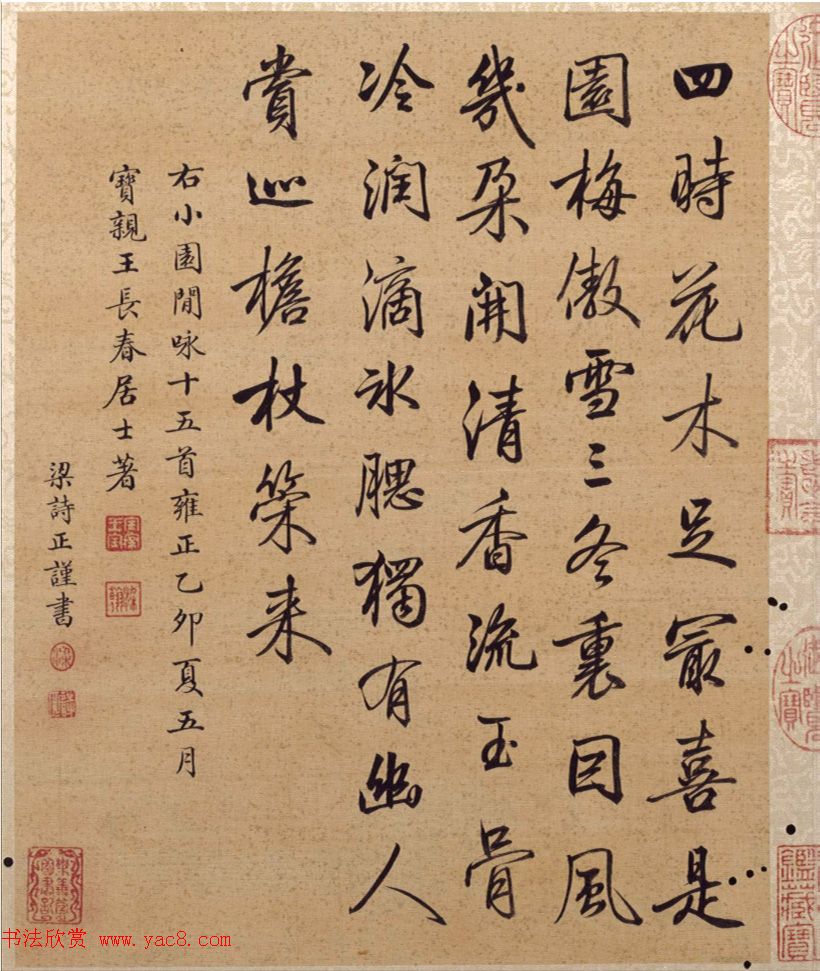 四時花木足冣喜是
園梅傲雪三冬裏因風
幾朶開清香流玉骨
冷潤滴冰腮獨有幽人
賞巡檐杖策来
右小園閒咏十五首雍正乙卯夏五月
寶親王長春居士著
梁詩正謹書
鑑藏寶
书法欣赏 www.yac8.com